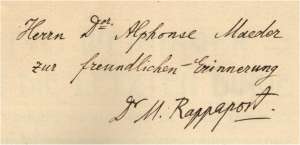 Herrn Dr. Alphonse Maeder
zur freundlichen Erinnerung
Dr M. Rappaport.